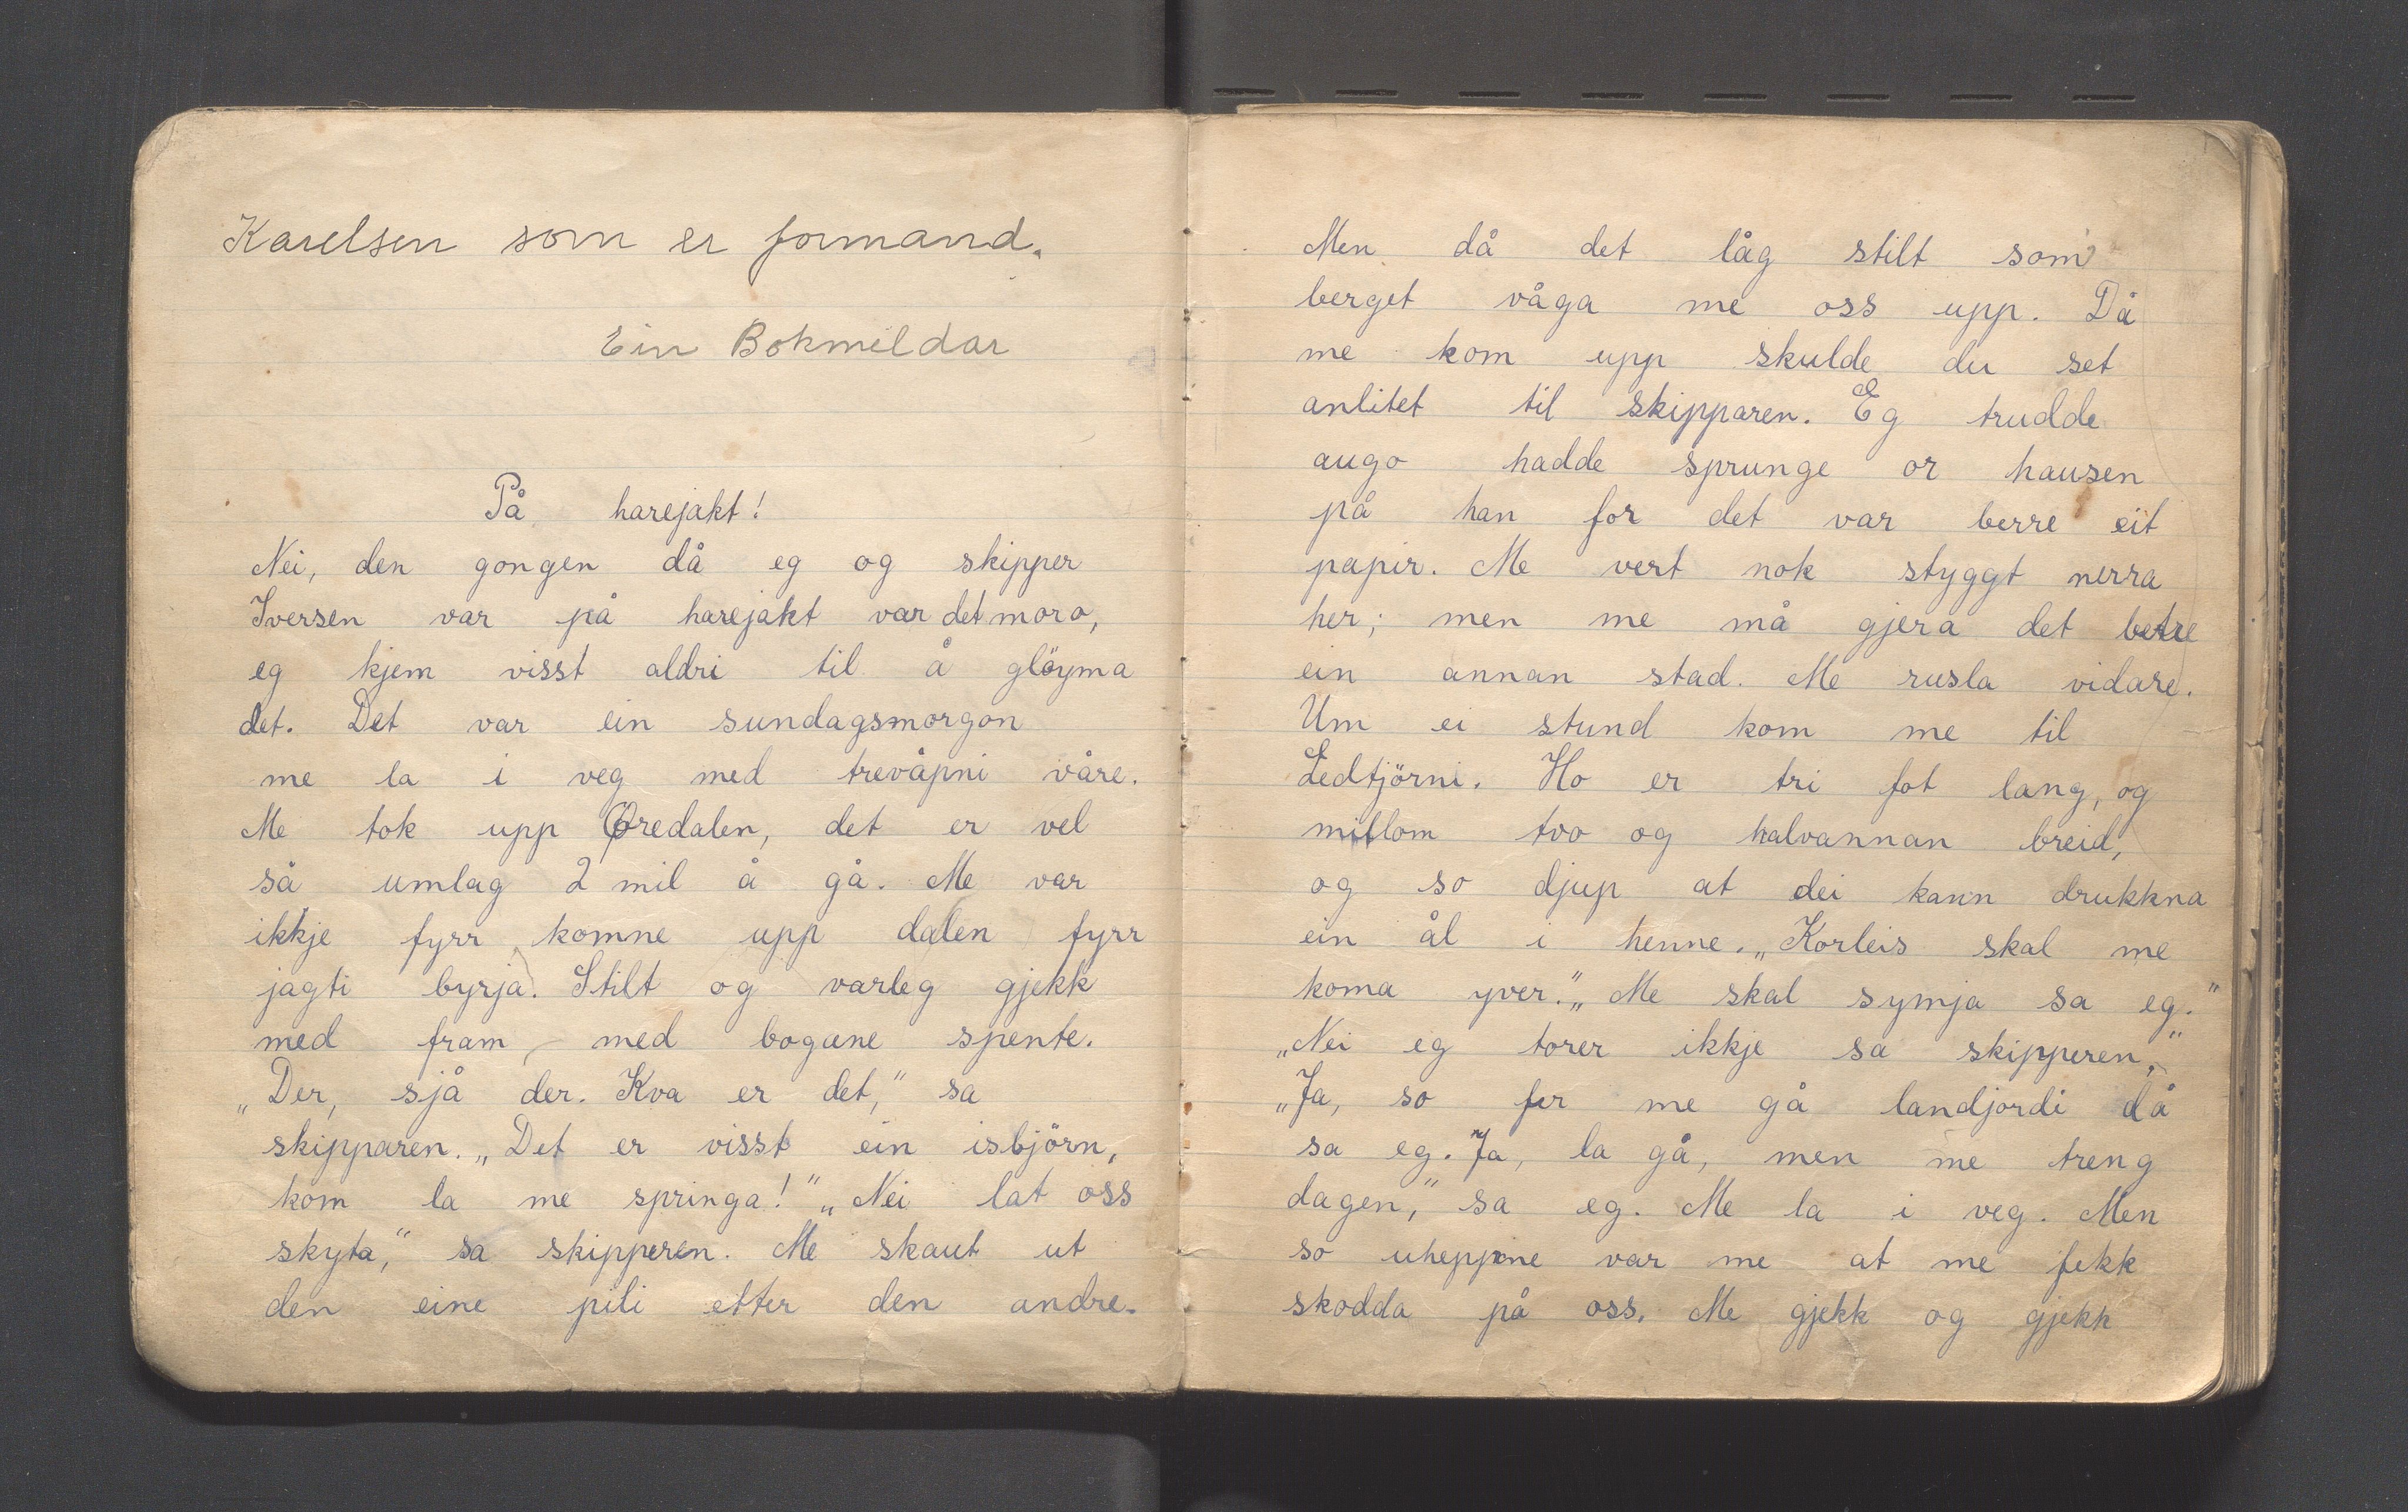 Karelsen som er formand.
Ein Bokmeldar
På harejakt!
Nei, den gongen då eg og skipper
Iversen var på harejakt var det moro,
eg kjem visst aldri til å glöyma
det. Det var ein sundagsmorgon
me la i veg med trevåpni våre.
Me tok upp Øredalen, det er vel
så umlag 2 mil å gå. Me var
ikkje fyrr komne upp dalen fyrr
jagti byrja. Stilt og varleg gjekk
med fram, med bogane spente.
„Der, sjå der. Kva er det,“ sa
skipparen. „Det er visst ein isbjörn,
kom la me springa!“ „Nei lat oss
skyta,“ sa skipperen. Me skaut ut
den eine pili etter den andre.
Men då det låg stilt som
berget våga me oss upp. Då
me kom upp skulde du set
anlitet til skipparen. Eg trudde
augo hadde sprunge or hausen
på han for det var berre eit
papir. Me vert nok styggt nerra
her; men me må gjera det betre
ein annan stad. Me rusla vidare.
Um ei stund kom me til
Ledtjörni. Ho er tri fot lang, og
millom tvo og halvannan breid,
og so djup at dei kann drukkna
ein ål i henne. „Korleis skal me
koma yver.“ „Me skal symja sa eg.“
„Nei eg torer ikkje sa skipperen,“
„Ja, so fer me gå landjordi då
sa eg. Ja, la gå, men me treng
dagen,“ sa eg. Me la i veg. Men
so uheppne var me at me fekk
skodda på oss. Me gjekk og gjekk